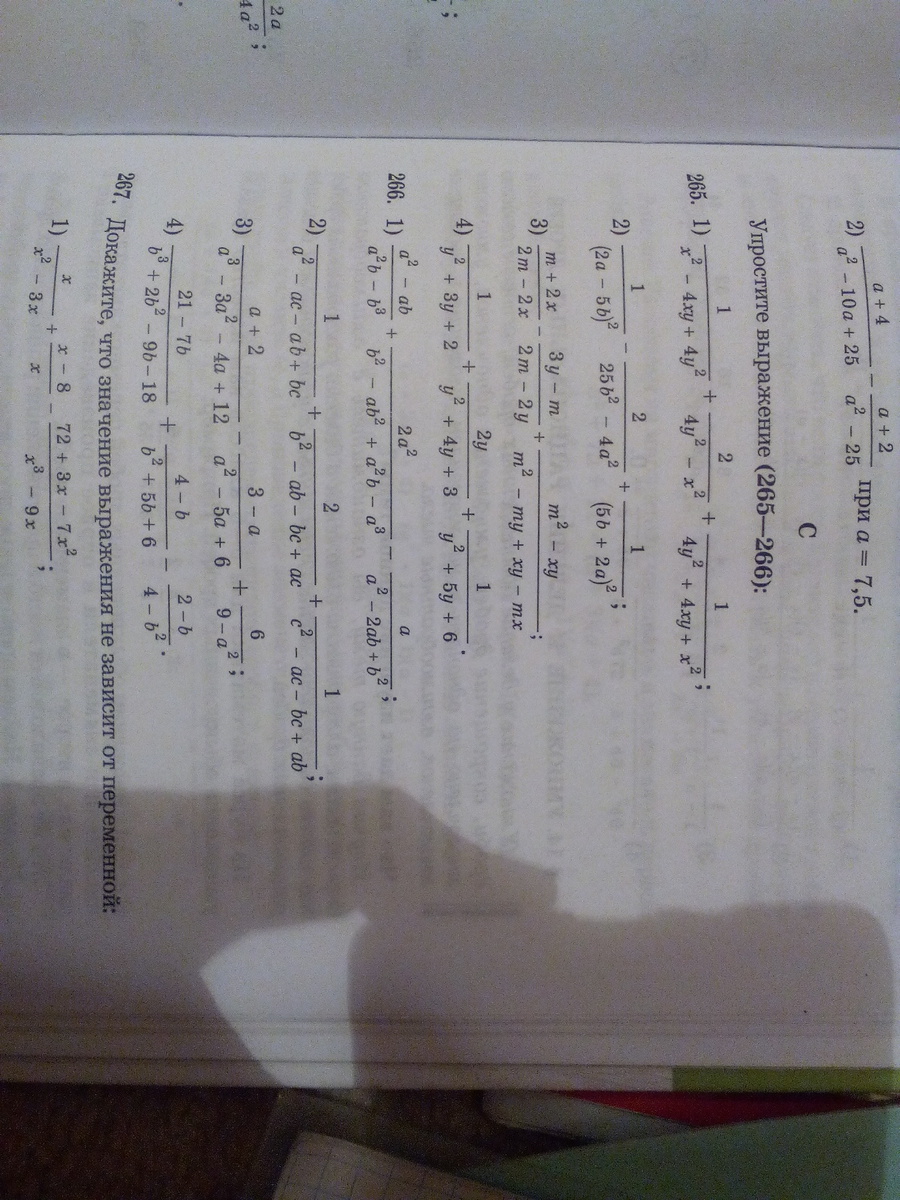 2a
4a²;
;
2) (a + 4)/(a² − 10a + 25) − (a + 2)/(a² − 25) при a = 7,5.
С
Упростите выражение (265—266):
265. 1) 1/(x² − 4xy + 4y²) + 2/(4y² − x²) + 1/(4y² + 4xy + x²);
2) 1/(2a − 5b)² − 2/(25b² − 4a²) + 1/(5b + 2a)²;
3) (m + 2x)/(2m − 2x) − (3y − m)/(2m − 2y) + (m² − xy)/(m² − my + xy − mx);
4) 1/(y² + 3y + 2) + 2y/(y² + 4y + 3) + 1/(y² + 5y + 6).
266. 1) (a² − ab)/(a²b − b³) + 2a²/(b² − ab² + a²b − a³) − a/(a² − 2ab + b²);
2) 1/(a² − ac − ab + bc) + 2/(b² − ab − bc + ac) + 1/(c² − ac − bc + ab);
3) (a + 2)/(a³ − 3a² − 4a + 12) − (3 − a)/(a² − 5a + 6) + 6/(9 − a²);
4) (21 − 7b)/(b³ + 2b² − 9b − 18) + (4 − b)/(b² + 5b + 6) − (2 − b)/(4 − b²).
267. Докажите, что значение выражения не зависит от переменной:
1) x/(x² − 3x) + (x − 8)/x − (72 + 3x − 7x²)/(x³ − 9x);